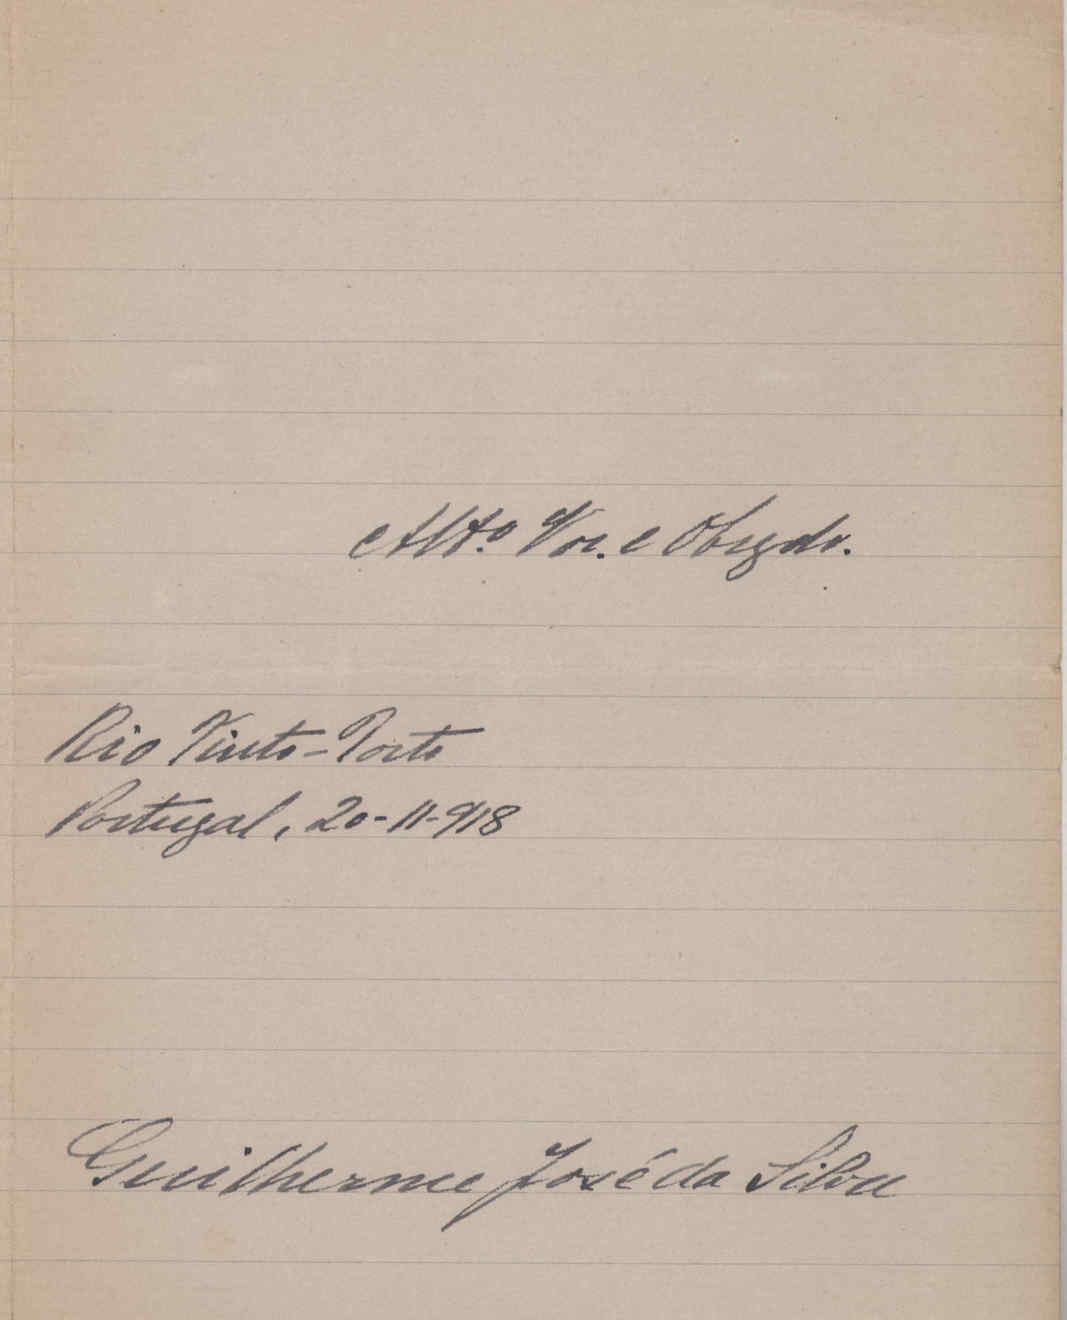 Altº. Vor. e Obrgdo.
Rio Tinto-Porto
Portugal, 20-11-918
Guilherme José da Silva